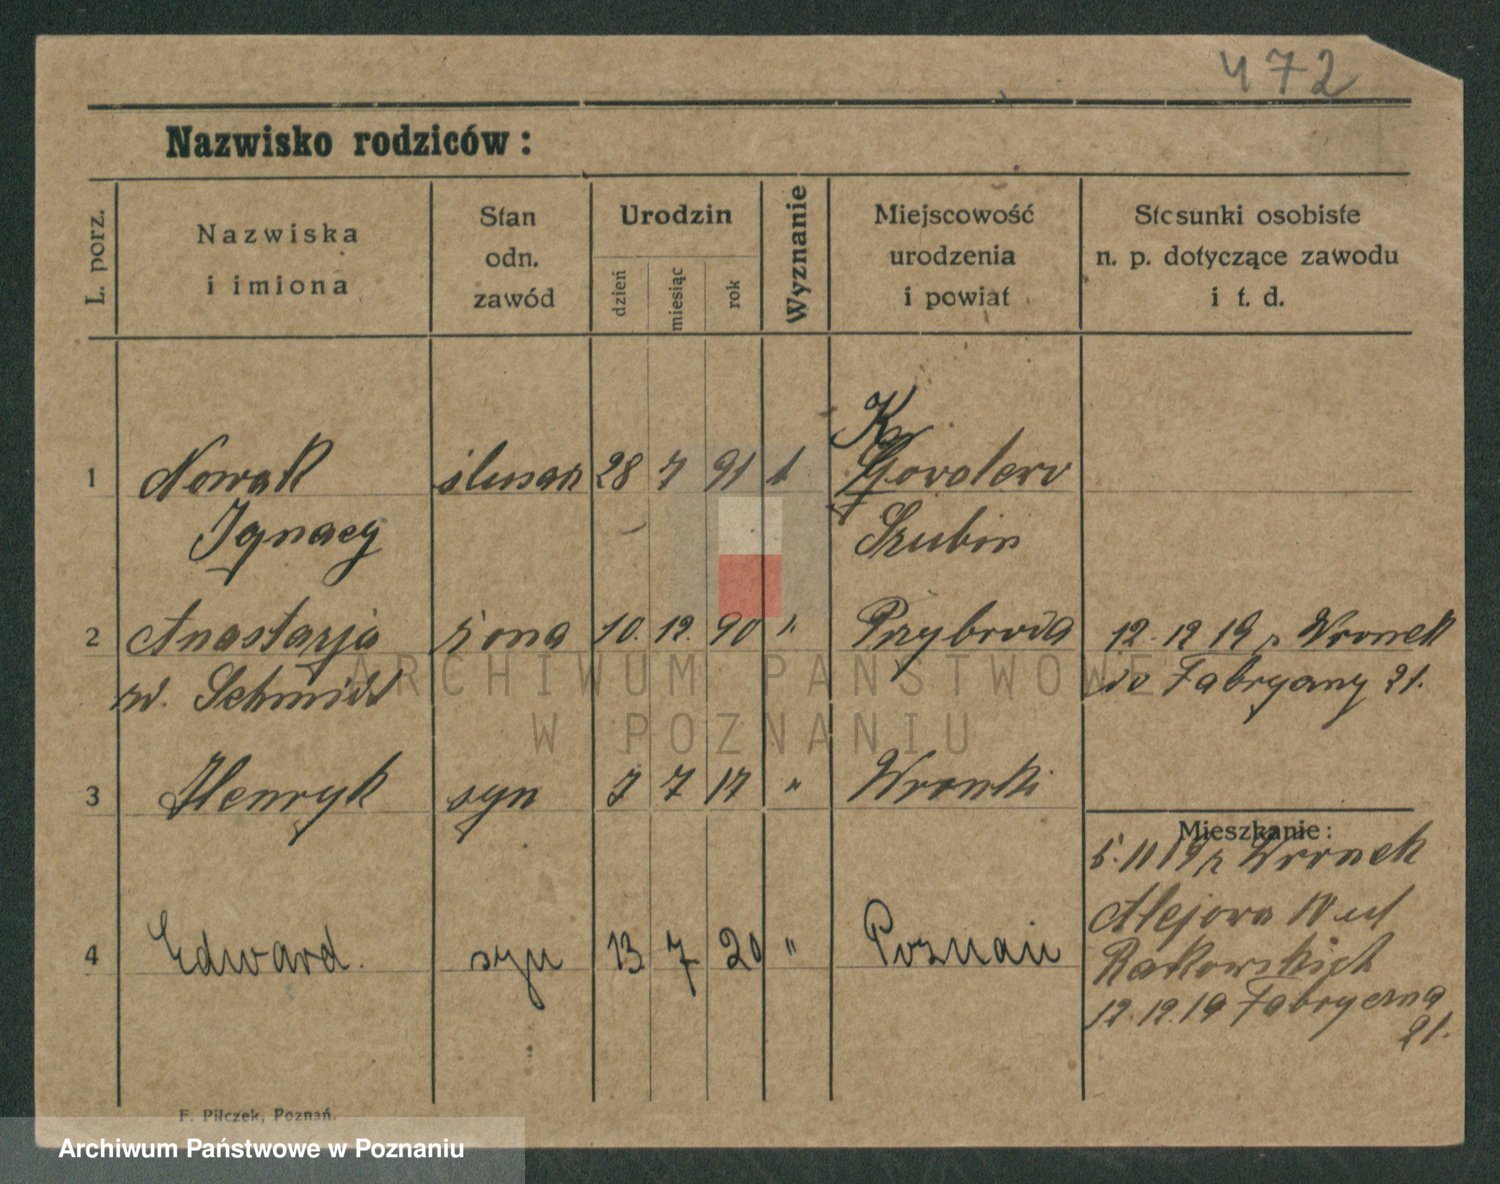 472
Nazwisko rodziców:
L. porz.
Nazwiska
i imiona
Stan
odn.
zawód
Urodzin
dzień
miesiąc
rok
Wyznanie
Miejscowość
urodzenia
i powiat
Stosunki osobiste
n. p. dotyczące zawodu
i t. d.
1 Nowak 28 7 91
Ignacy Szubin
2 Anastazja żona 10. 12. 90 Przybroda 12. 12 19 z Wronek
Schmidt do Fabryczny 21.
3 Henryk syn 7 7 17 " Wronki
Mieszkanie:
5. 11 19 z Wronek
4 Edward. syn 13 7 20 " Poznań
Alejowa
Rakowskich
12. 12. 19 Fabryczna
21.
F. Pilczek, Poznań.
ARCHIWUM PAŃSTWOWE
W POZNANIU
Archiwum Państwowe w Poznaniu